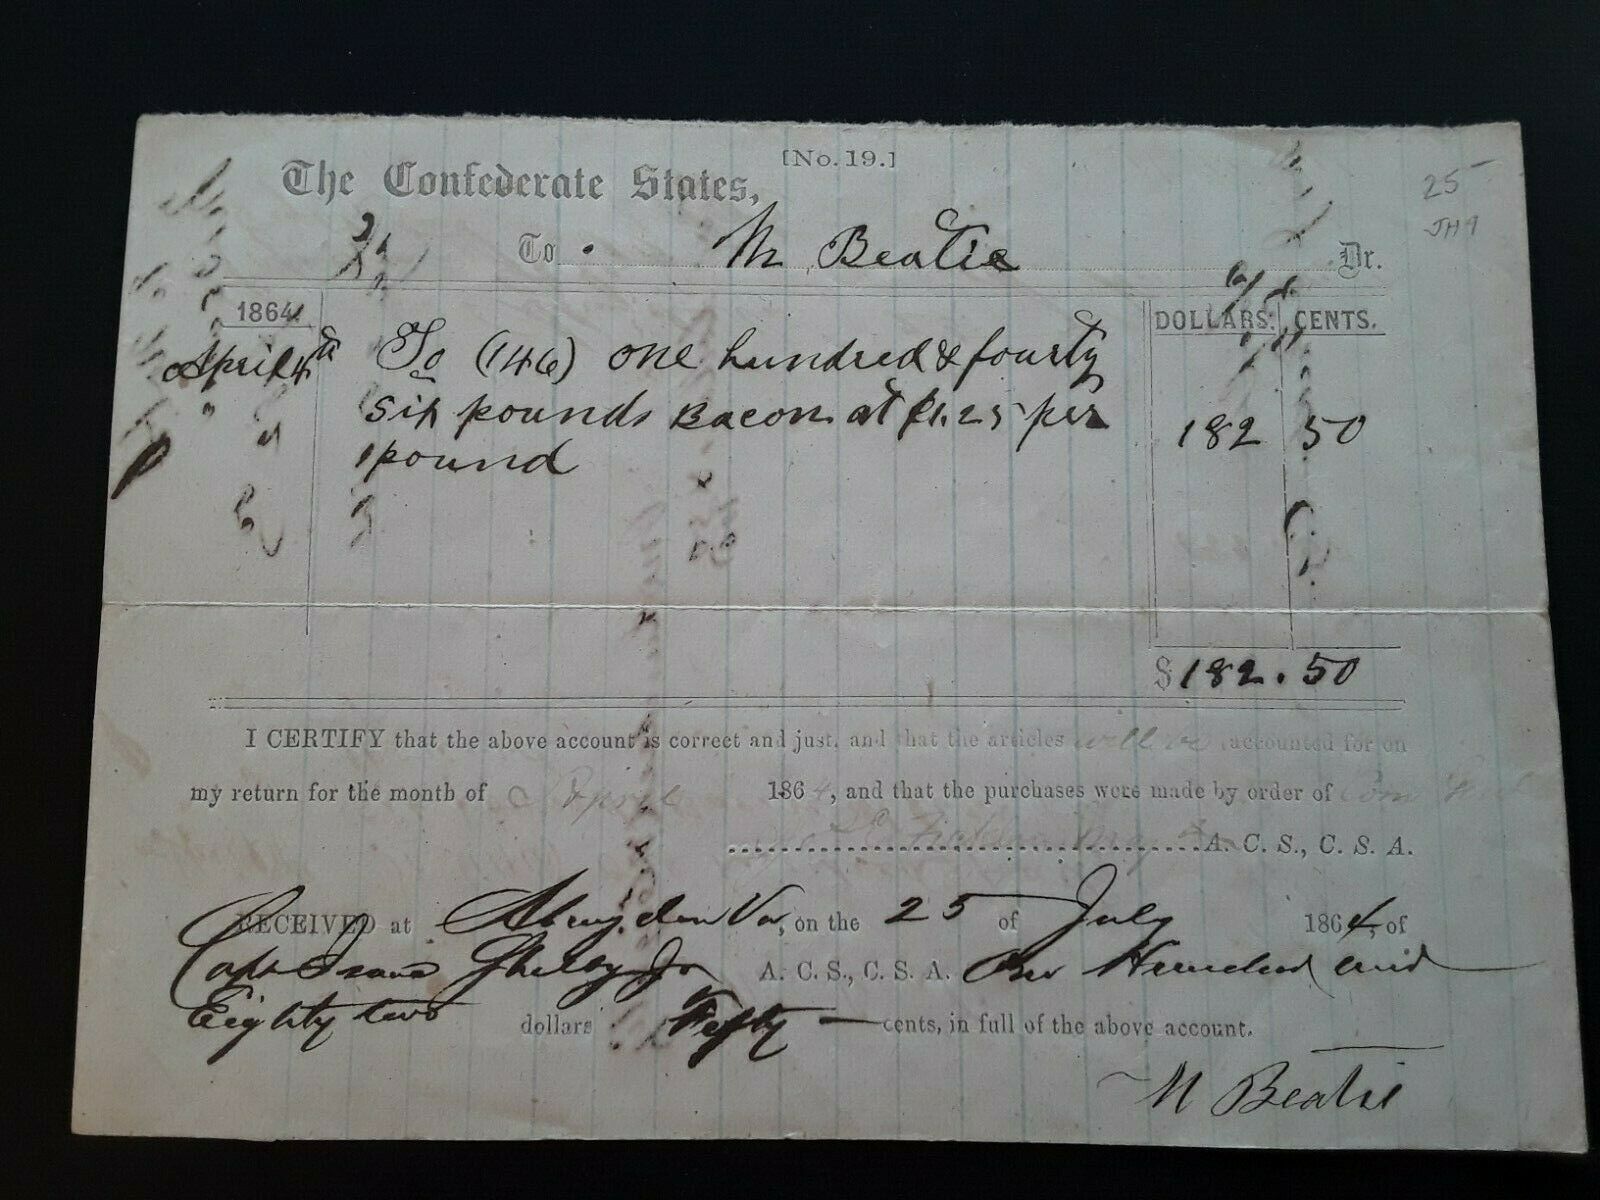 [No. 19.]
The Confederate States,
25
JH9
To M Beatie Dr.
1864. DOLLARS. CENTS.
April 4th To (146) one hundred & fourty
" six pounds Bacon at $1.25 per 182 50
pound
$ 182.50
I CERTIFY that the above account is correct and just, and that the articles will be accounted for on
my return for the month of April 1864, and that the purchases were made by order of Com
A. C. S., C. S. A.
RECEIVED at Abingdon Va, on the 25 of July 1864, of
Capt Isaac Shelby Jr A. C. S., C. S. A. One Hundred and
Eighty two dollars Fifty cents, in full of the above account.
M Beatie